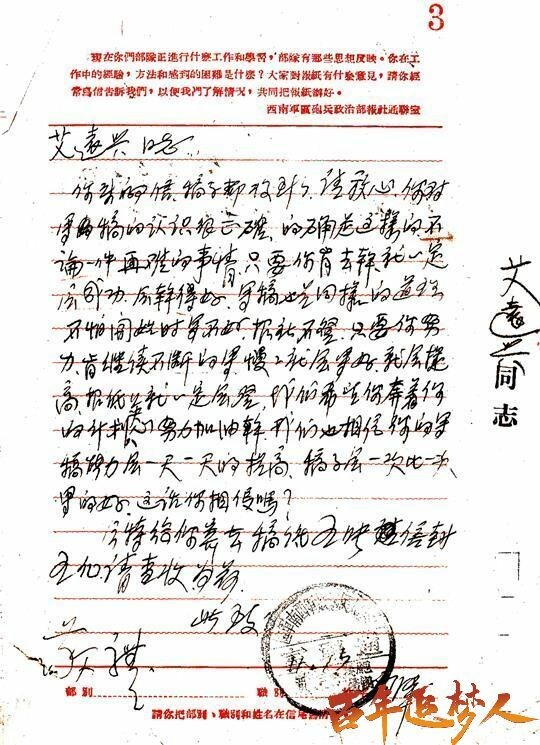 3
現在你們部隊正進行什麼工作和學習,部隊有那些思想反映。你在工
作中的經驗,方法和感到的困難是什麼?大家對報紙有什麼意見,請你經
常寫信告訴我們,以便我們了解情況,共同把報紙辦好。
西南軍區砲兵政治部報社通聯室
艾遠兴同志
你来的信、稿子都收到了,请放心,你对
写稿的认识很正確,的确是这樣的不
論一件再难的事情,只要你肯去幹就一定
会成功,会幹得好,写稿也是同樣的道理
不怕開始时写不好,报社不登,只要你努
力,肯继续不断的写,慢々就会写好,就会提
高,报纸就一定会登,我们希望你拿着你
的计划努力加油幹,我们也相信你的写
稿能力会一天一天的提高,稿子会一次比一次
写的好,这话你相信嗎?
今特给你寄去稿纸五张信封
五个请查收为荷
此致
敬礼
部別 職別
請你把部別、職別和姓名在信尾
艾遠兴同志
百年追梦人